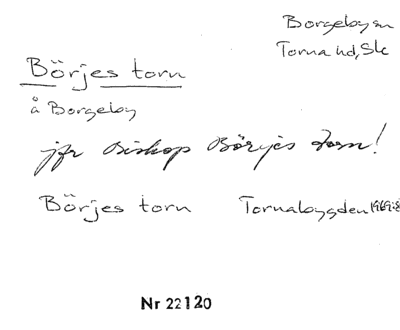 Borgeby sn
Torna hd, Sk
Börjes torn
å Borgeby
jfr Biskop Börjes torn!
Börjes torn Tornabygden 1969:8
Nr 22120